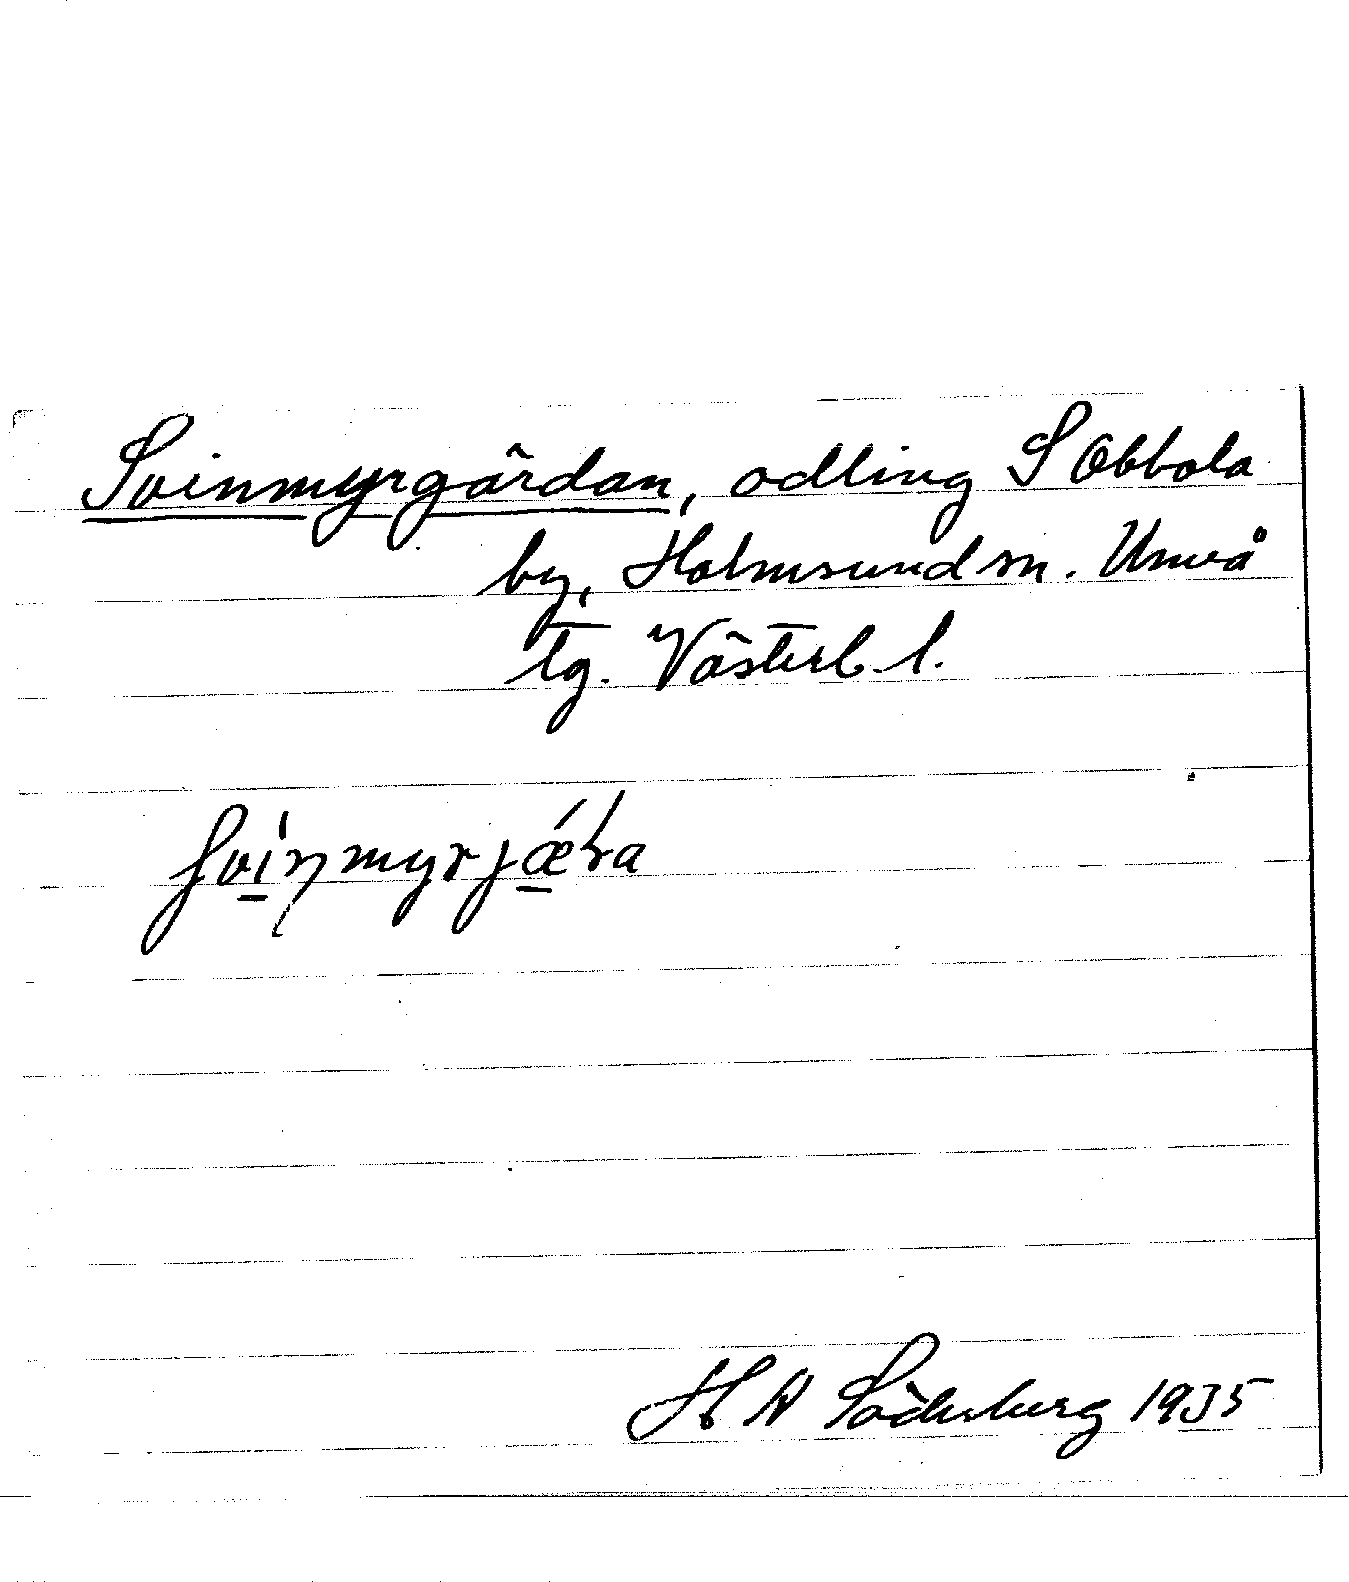 Svinmyrgärdan, odling S Obbola
by, Holmsund sn. Umeå
tg. Västerb. l.
H A Söderberg 1935